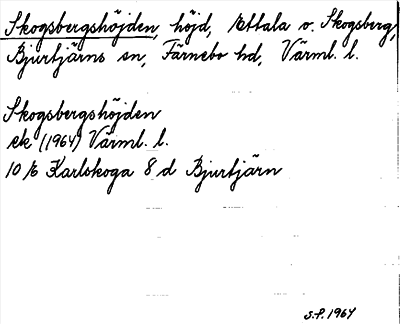 Skogsbergshöjden, höjd, Ettala o. Skogsberg,
Bjurtjärns sn, Färnebo hd, Värml. l.
Skogsbergshöjden
ek (1964) Värml. l.
10 E Karlskoga 8 d Bjurtjärn
S.F. 1964